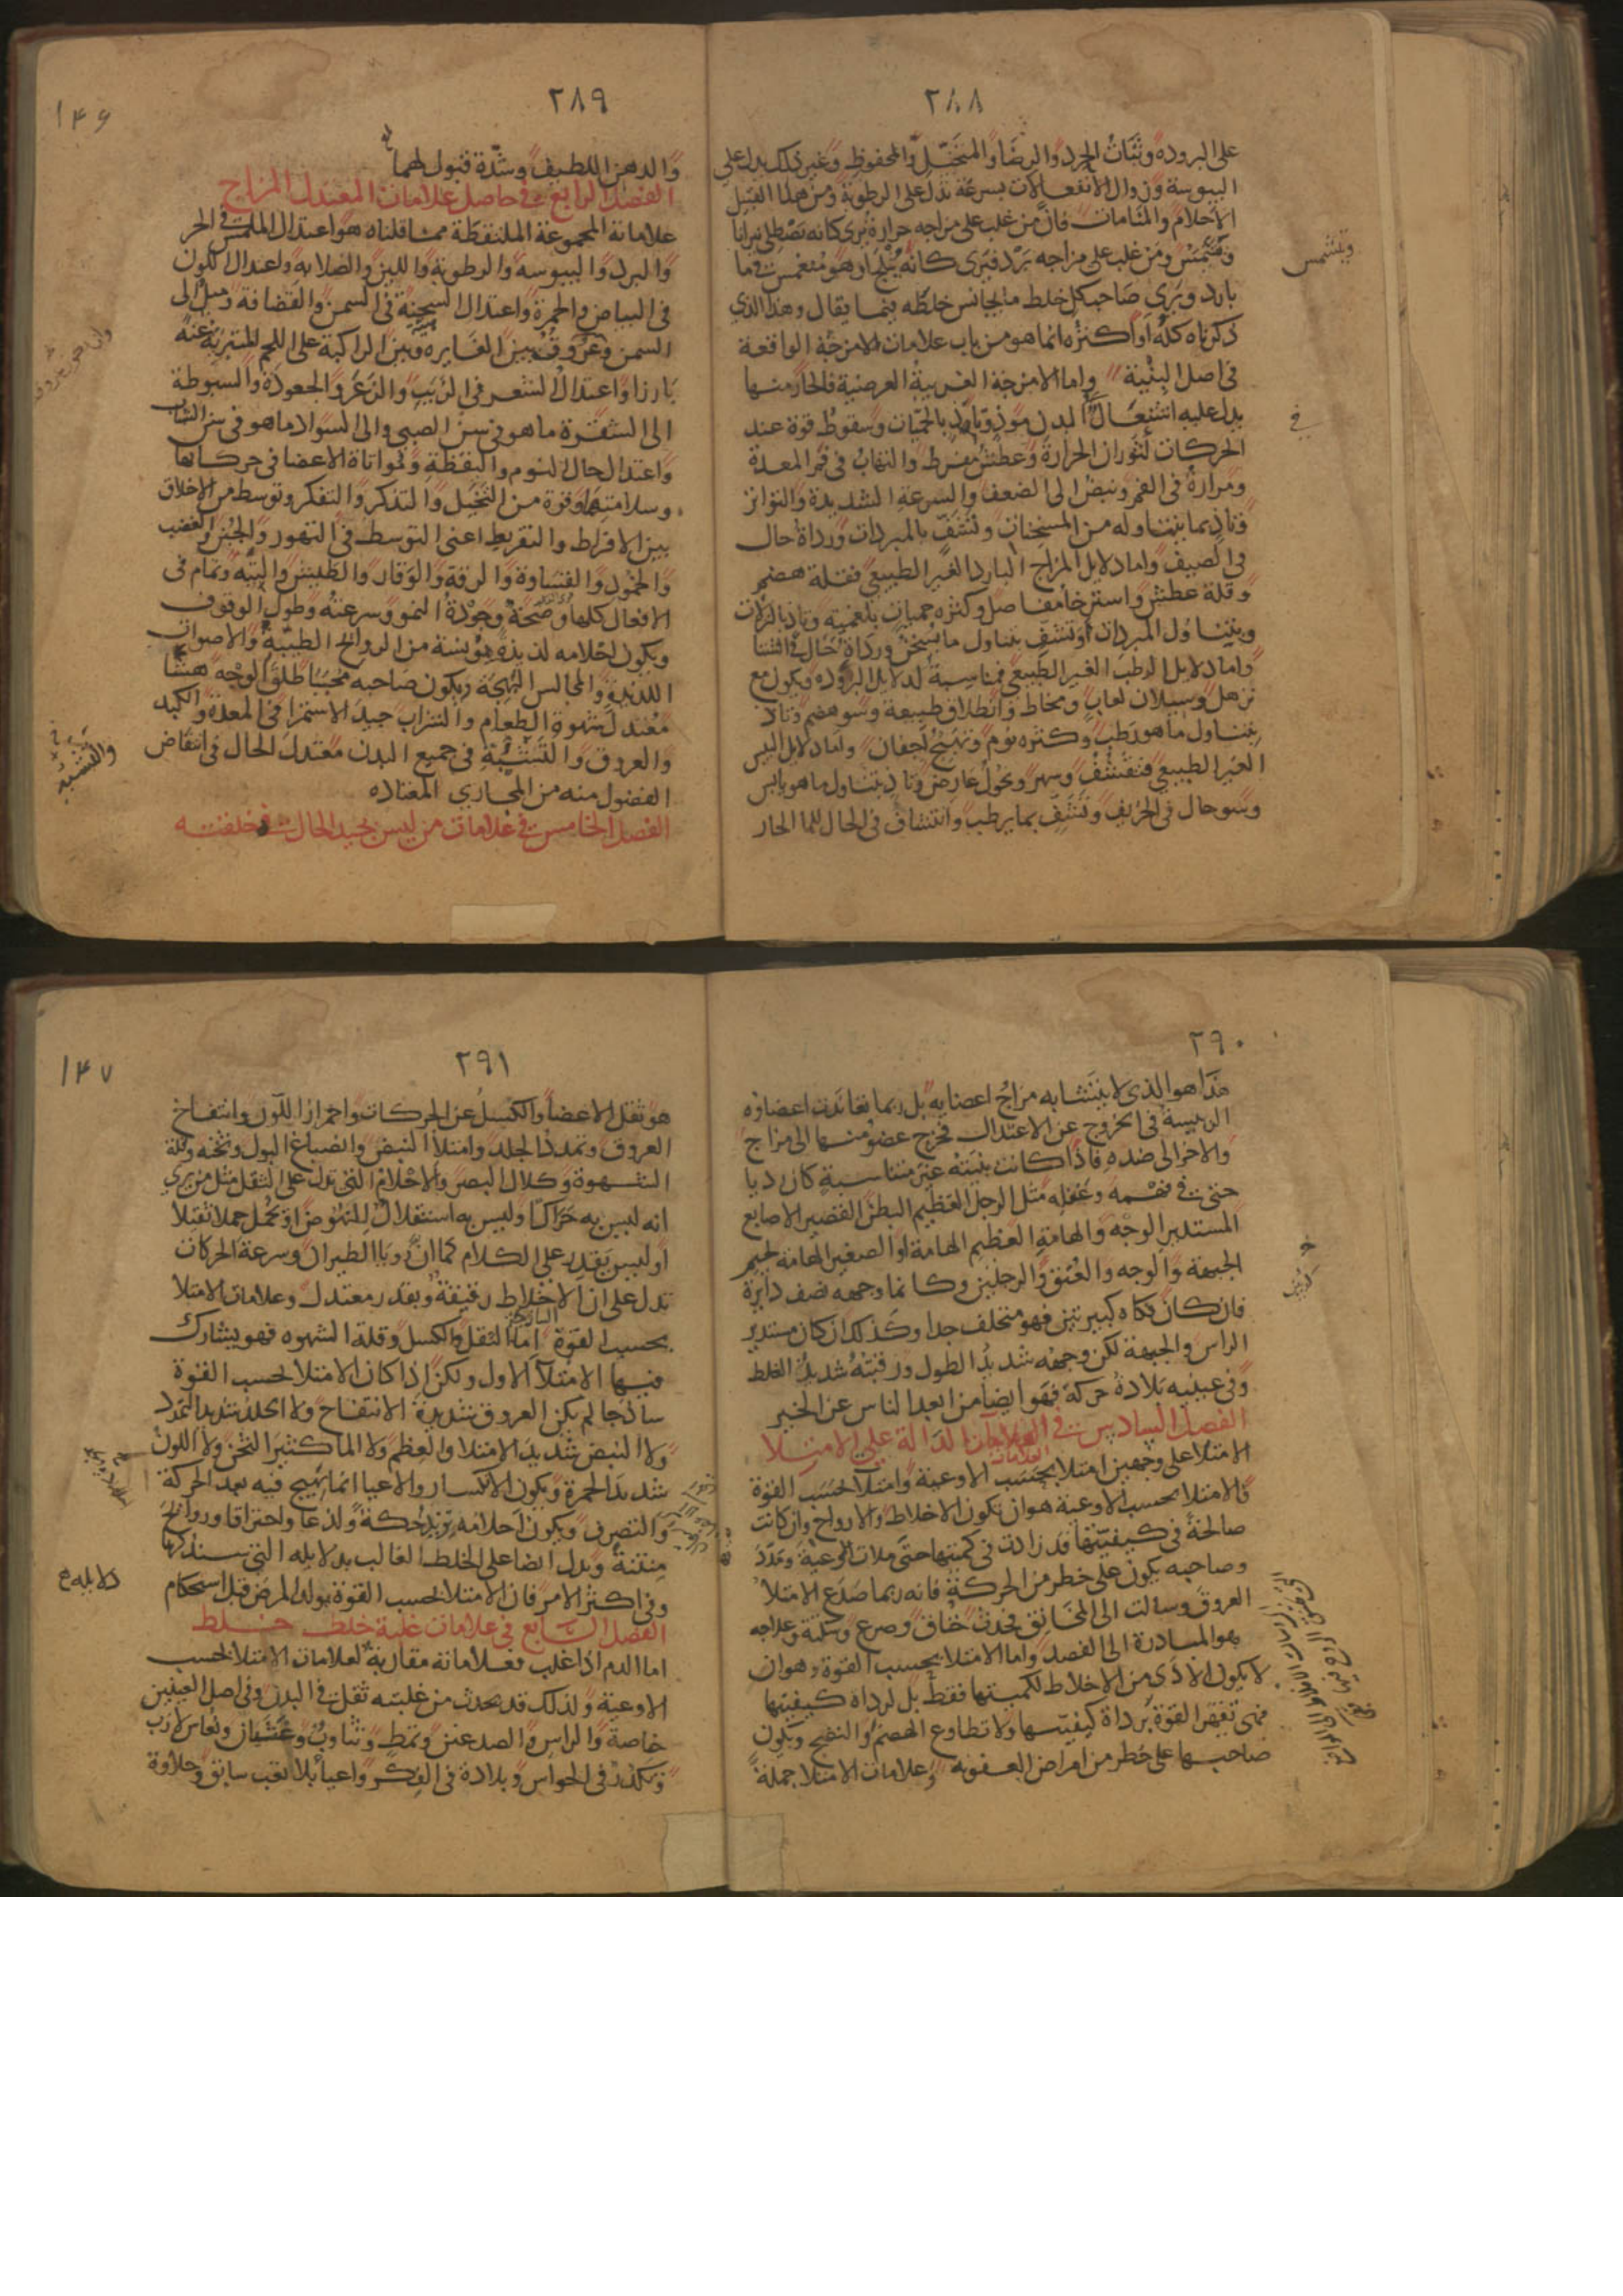 ٢٨٨
على البرودة وثبات الحرد والرضا والمتخيل والمحفوظ وغير ذلك يدل على
اليبوسة وزوال الانفعالات بسرعة تدل على الرطوبة ومن هذا القبيل
الاحلام والمنامات فان من غلب على مزاجه حرارة يرى كانه يصطلي نيرانا
ويشمس ومن غلب على مزاجه برد فيرى كانه يثلج او هو منغمس في ما
بارد ويرى صاحب كل خلط ما يجانس خلطه فيما يقال وهذا الذي
ذكرناه كله او اكثره انما هو من باب علامات الامزجة الواقعة
في اصل البنية واما الامزجة الغريبة العرضية فالحار منها
يدل عليه اشتعال البدن موذ وتاذ بالحميات وسقوط قوة عند
الحركات لثوران الحرارة وعطش مفرط والتهاب في فم المعدة
ومرارة في الفم ونبض الى الضعف والسرعة الشديدة والتواتر
وتاذ بما يتناوله من المسخنات وتشف بالمبردات ورداة حال
في الصيف واما دلايل المزاج البارد الغير الطبيعي فقلة هضم
وقلة عطش واسترخا مفاصل وكثرة حميات بلغمية وتاذ بالنزلات
وبتناول المبردات وتشف بتناول ما يسخن ورداة حال في الشتا
واما دلايل الرطب الغير الطبيعي فمناسبة لدلايل البرودة ويكون مع
ترهل وسيلان لعاب ومخاط وانطلاق طبيعة وسو هضم وتاذ
بتناول ما هو رطب وكثرة نوم وتهيج اجفان واما دلايل اليبس
الغير الطبيعي فتقشف وسهر ونحول عارض وتاذ بتناول ما هو يابس
وسو حال في الخريف وتشف بما يرطب وانتشاف في الحال للما الحار
ويتشمس
في
٢٨٩
١۴۶
والدهن اللطيف وشدة قبول لهما
الفصل الرابع في حاصل علامات المعتدل المزاج
علاماتة المجموعة الملتقطة مما قلناه هو اعتدال الملمس في الحر
والبرد واليبوسه والرطوبة واللين والصلابة واعتدال اللون
في البياض والحمرة واعتدال السحنة في السمن والقضافة وميل الى
السمن وعروقه بين الغايرة وبين الراكبة على اللحم المتبرية عنه
بارزا واعتدال الشعر في الزبب والزعر والجعودة والسبوطة
الى الشقرة ما هو في سن الصبي والى السواد ما هو في سن الشباب
واعتدال حال النوم واليقظة ومواتاة الاعضا في حركاتها
وسلامتها وقوة من التخيل والتذكر والتفكر وتوسط من الاخلاق
بين الافراط والتفريط اعني التوسط في التهور والجبن والغضب
والخمود والقساوة والرقة والوقار والطيش والتيه وتمام في
الافعال كلها وصحة وجودة النمو وسرعته وطول الوقوف
ويكون احلامه لذيذة مونسة من الروايح الطيبة والاصوات
اللذيذة والمجالس البهجة ويكون صاحبه محببا طلق الوجه هشا
معتدل شهوة الطعام والشراب جيد الاستمرا في المعدة والكبد
والعروق والتشبيه في جميع البدن معتدل الحال في انتقاض
الفضول منه من المجاري المعتاده
الفصل الخامس في علامات من ليس بجيد الحال في خلقته
والتشبيه
٢٩٠
هذا هو الذي لا يتشابه مزاج اعضايه بل ربما تعاندت اعضاوه
الرييسة في الخروج عن الاعتدال فخرج عضو منها الى مزاج
والاخر الى ضده فاذا كانت بنيته غير متناسبة كان رديا
حتى في فهمه وعقله مثل الرجل العظيم البطن القصير الاصابع
المستدير الوجه والهامة العظيم الهامة او الصغير الهامة لحيم
الجبهة والوجه والعنق والرجلين وكانما وجهه نصف دايرة
فان كان فكاه كبيرتين فهو مختلف جدا وكذلك ان كان مستدير
الراس والجبهة لكن وجهه شديد الطول ورقبته شديدة الغلظ
وفي عينيه بلادة حركة فهو ايضا من ابعد الناس عن الخير
الفصل السادس في العلامات الدالة على الامتلا
الامتلا على وجهين امتلا بحسب الاوعية وامتلا بحسب القوة
فالامتلا بحسب الاوعية هو ان تكون الاخلاط والارواح وان كانت
صالحة في كيفيتها قد زادت في كميتها حتى ملات الاوعية ومددت
وصاحبه يكون على خطر من الحركة فانه ربما صدع الامتلا
العروق وسالت الى المخانق فحدث خناق وصرع وسكتة وعلاجه
هو المبادرة الى الفصد واما الامتلا بحسب القوة فهو ان
لا يكون الاذى من الاخلاط لكميتها فقط بل لرداة كيفيتها
فهي تقهر القوة برداة كيفيتها ولا تطاوع الهضم والنضج ويكون
صاحبها على خطر من امراض العفونة وعلامات الامتلا جملة
٢٩١
١۴٧
هو ثقل الاعضا والكسل عن الحركات واحمرار اللون وانتفاخ
العروق وتمدد الجلد وامتلا النبض وانصباغ البول وثخنه وقلة
الشهوة وكلال البصر والاحلام التي تدل على الثقل مثل من يرى
انه ليس به حراك وليس به استقلال للنهوض او يحمل حملا ثقيلا
او ليس يقدر على الكلام كما ان رويا الطيران وسرعة الحركات
تدل على ان الاخلاط رقيقة وبقدر معتدل وعلامات الامتلا
بحسب القوة اما الثقل والكسل وقلة الشهوه فهو يشارك
فيها الامتلا الاول ولكن اذا كان الامتلا بحسب القوة
ساذجا لم يكن العروق شديدة الانتفاخ ولا الجلد شديد التمدد
ولا النبض شديد الامتلا والعظم ولا الما كثير الثخن ولا اللون
شديد الحمرة ويكون الانكسار والاعيا انما يهيج فيه بعد الحركة
والتصرف ويكون احلامه تريه حكة ولذعا واحتراقا وروايح
منتنة ويدل ايضا على الخلط الغالب بدلايله التي سنذكرها
وفي اكثر الامر فان الامتلا بحسب القوة يولد المرض قبل استحكام
دلايله
الفصل السابع في علامات غلبة خلط خلط
اما الدم اذا غلب فعلاماته مقاربة لعلامات الامتلا بحسب
الاوعية ولذلك قد يحدث من غلبته ثقل في البدن وفي اصل العينين
خاصة والراس والصدغين وتمط وتثاوب وغشيان ونعاس لازب
وتكدر في الحواس وبلادة في الفكر واعيا بلا تعب سابق وحلاوة